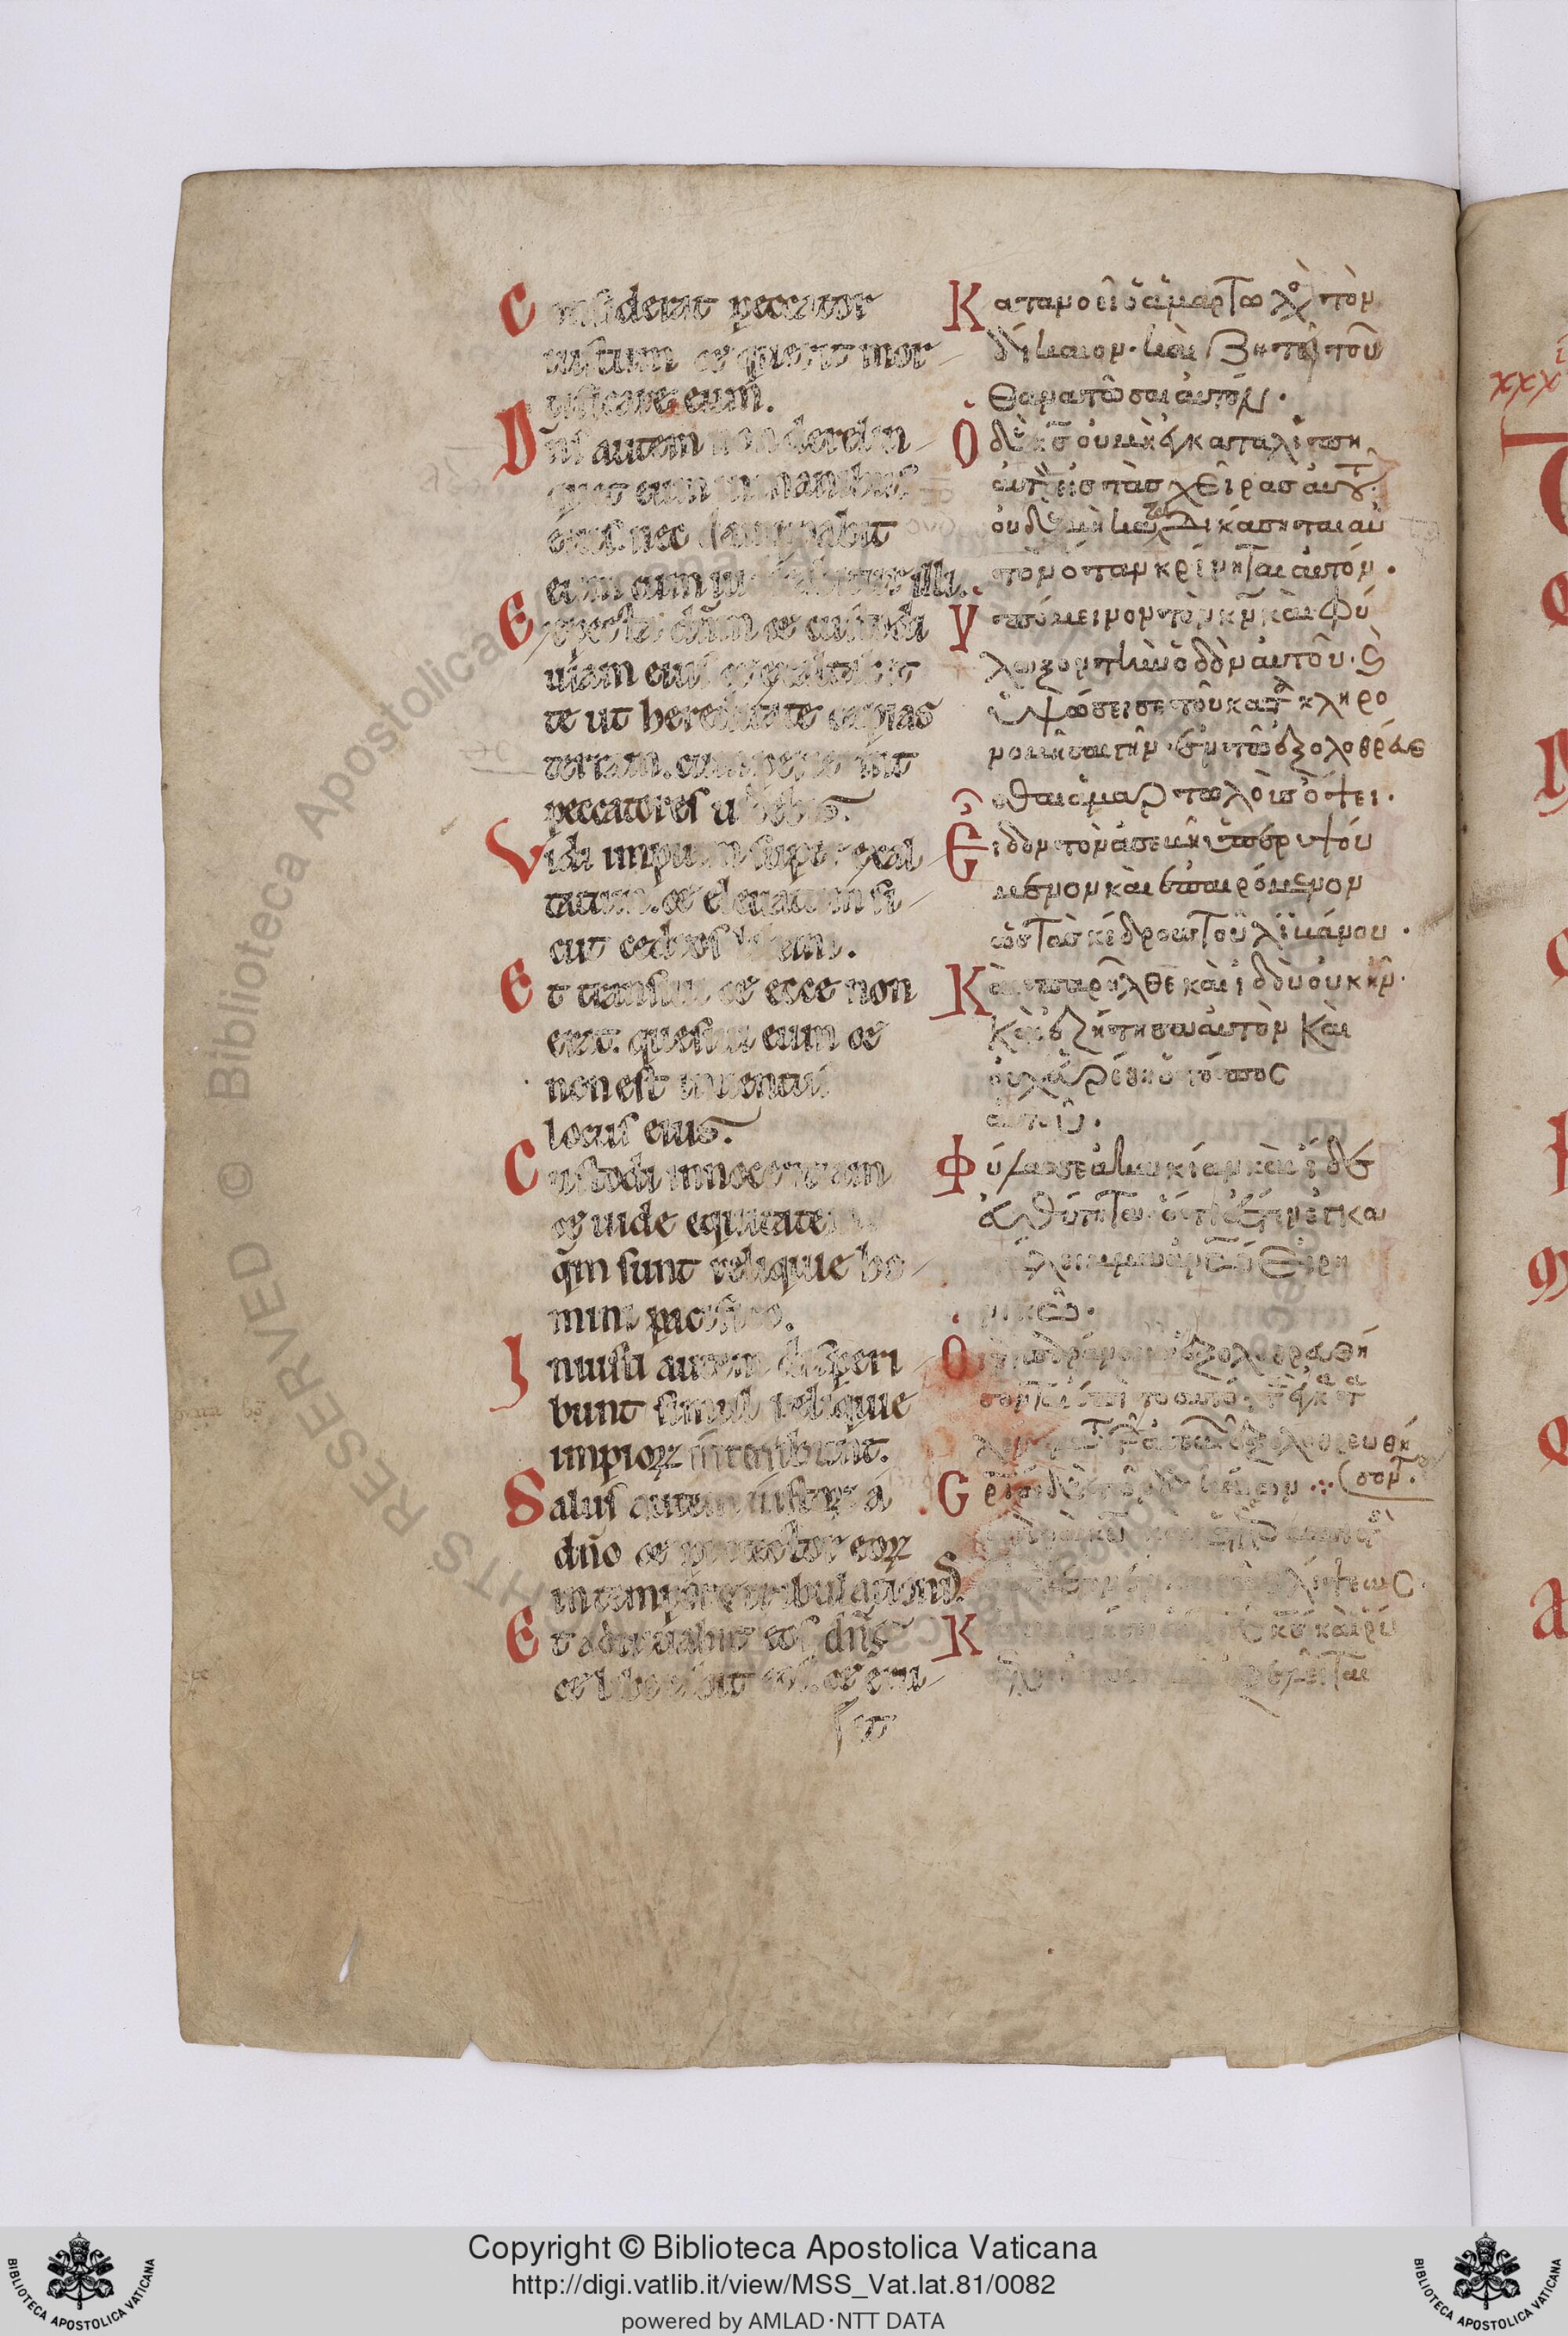 Considerat peccator
iustum et querit mor
tificare eum.
Dñs autem non derelin
quet eum in manibus
eius. nec dampnabit
eum cum iudicabitur illi.
Expecta dñm et custodi
uiam eius et exaltabit
te ut hereditate capias
terram. cum perierint
peccatores uidebis.
Vidi impium super exal
tatum. et eleuatum si
cut cedros libani.
Et transiui et ecce non
erat. quesiui eum et
non est inuentus
locus eius.
Custodi innocentiam
et uide equitatem
qm̃ sunt relique ho
mini pacifico.
Iniusti autem disperi
bunt simul relique
impioꝝ interibunt.
Salus autem iustoꝝ a
dño et protector eoꝝ
in tempore tribulationis.
Et adiuuabit eos dñs
et liberabit eos. et eru
et
Κατανοεῖ ὁ ἁμαρτωλὸς τὸν
δίκαιον. καὶ ζητεῖ τοῦ
θανατῶσαι αὐτόν.
Ὁ δὲ κς οὐ μὴ ἐγκαταλίπῃ
αὐτὸν εἰς τὰς χεῖρας αὐτοῦ.
οὐδὲ μὴ καταδικάσηται αὐ
τὸν ὅταν κρίνηται αὐτόν.
Υπόμεινον τὸν κν καὶ φύ
λαξον τὴν ὁδὸν αὐτοῦ. καὶ
ὑψώσει σε τοῦ κατακληρο
νομῆσαι γῆν. ἐν τῷ ἐξολοθρεύε
σθαι ἁμαρτωλοὺς ὄψει.
Εἶδον τὸν ἀσεβῆ ὑπερυψού
μενον καὶ ἐπαιρόμενον
ὡς τὰς κέδρους τοῦ λιβάνου.
Καὶ παρῆλθε καὶ ἰδοὺ οὐκ ἦν.
καὶ ἐζήτησα αὐτὸν καὶ
οὐχ εὑρέθη ὁ τόπος
αὐτοῦ.
Φύλασσε ἀκακίαν καὶ ἴδε
εὐθύτητα. ὅτι ἐστὶν
εἰρη
νικῷ.
Οἱ ἐξολοθρευθή
σονται ἐπὶ τὸ αὐτό. τὰ ἐγκατα
ἐξολοθρευθή
σονται.
δὲ τῶν δικαίων
θλίψεως.
Κ ὁ κς καὶ ῥύ
ἐξελεῖται
Copyright © Biblioteca Apostolica Vaticana
http://digi.vatlib.it/view/MSS_Vat.lat.81/0082
powered by AMLAD·NTT DATA